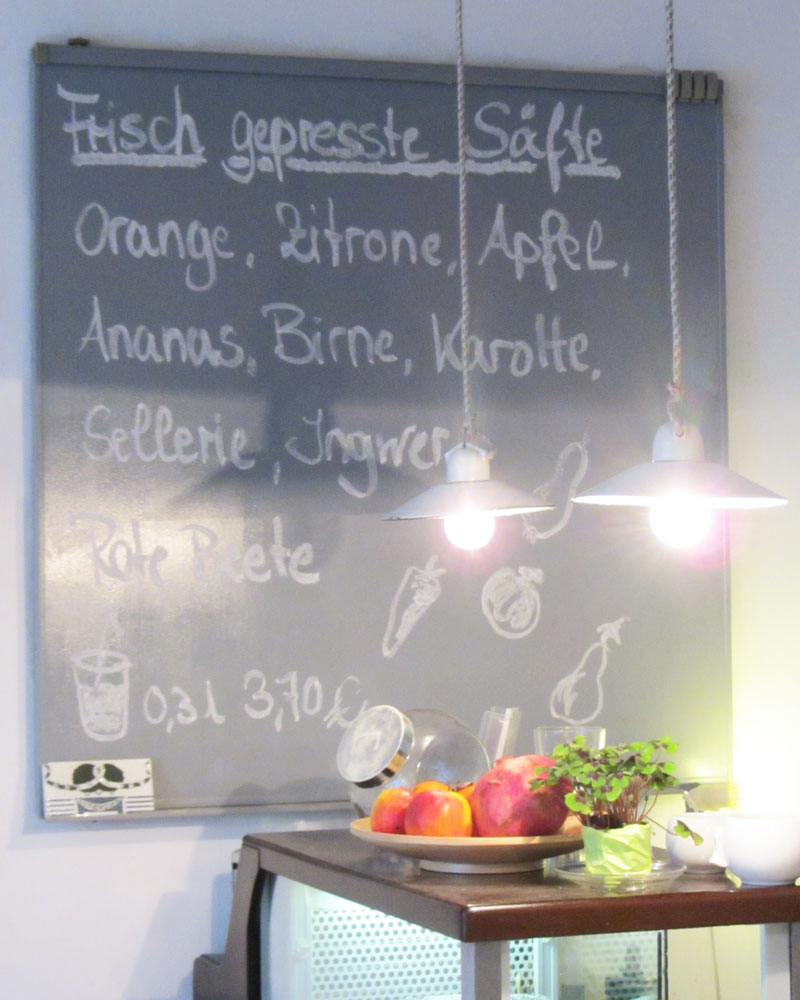 Frisch gepresste Säfte
Orange, Zitrone, Apfel,
Ananas, Birne, Karotte,
Sellerie, Ingwer
Rote Beete
0,3l 3,70€